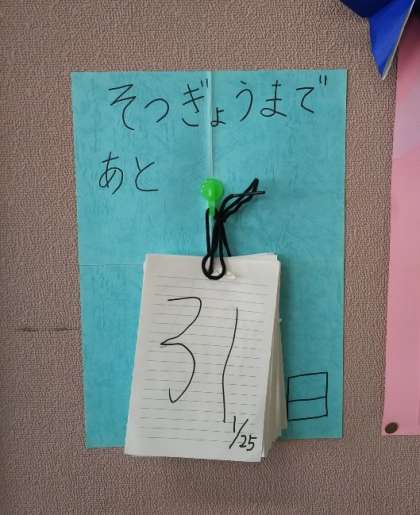 そつぎょうまで
あと
31
1/25
日